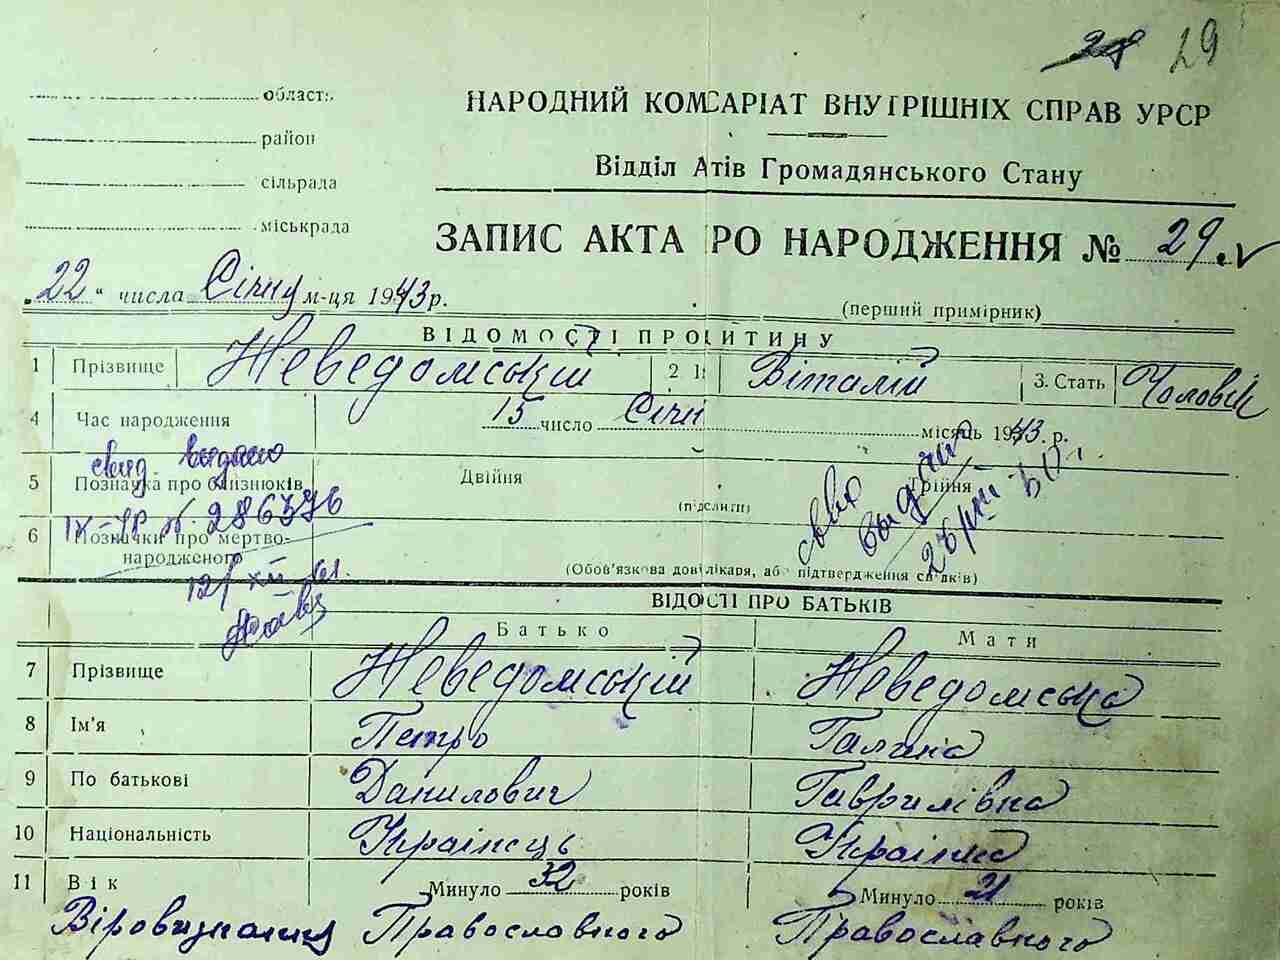 28 29
область
район
сільрада
міськрада
НАРОДНИЙ КОМІСАРІАТ ВНУТРІШНІХ СПРАВ УРСР
Відділ Атів Громадянського Стану
ЗАПИС АКТА ПРО НАРОДЖЕННЯ № 29
„22“ числа Січня м-ця 1943 р.
(перший примірник)
ВІДОМОСТІ ПРО ДИТИНУ
1 Прізвище Неведомський 2 Ім Віталій 3. Стать Чоловік
4 Час народження 15 число Січня місяць 1943. р.
свид. видано
5 Позначка про близнюків Двійня Трійня
(підслити)
IV-УР № 286376
6 Позначки про мертво-
народженого
(Обов'язкова довідка лікаря, або підтвердження свідків)
12/XII 61.
ВІДОМОСТІ ПРО БАТЬКІВ
Батько Мати
7 Прізвище Неведомський Неведомська
8 Ім'я Петро Галина
9 По батькові Данилович Гаврилівна
10 Національність Українець Українка
11 Вік Минуло 32 років Минуло 21 років
Віровизнання Православного Православного